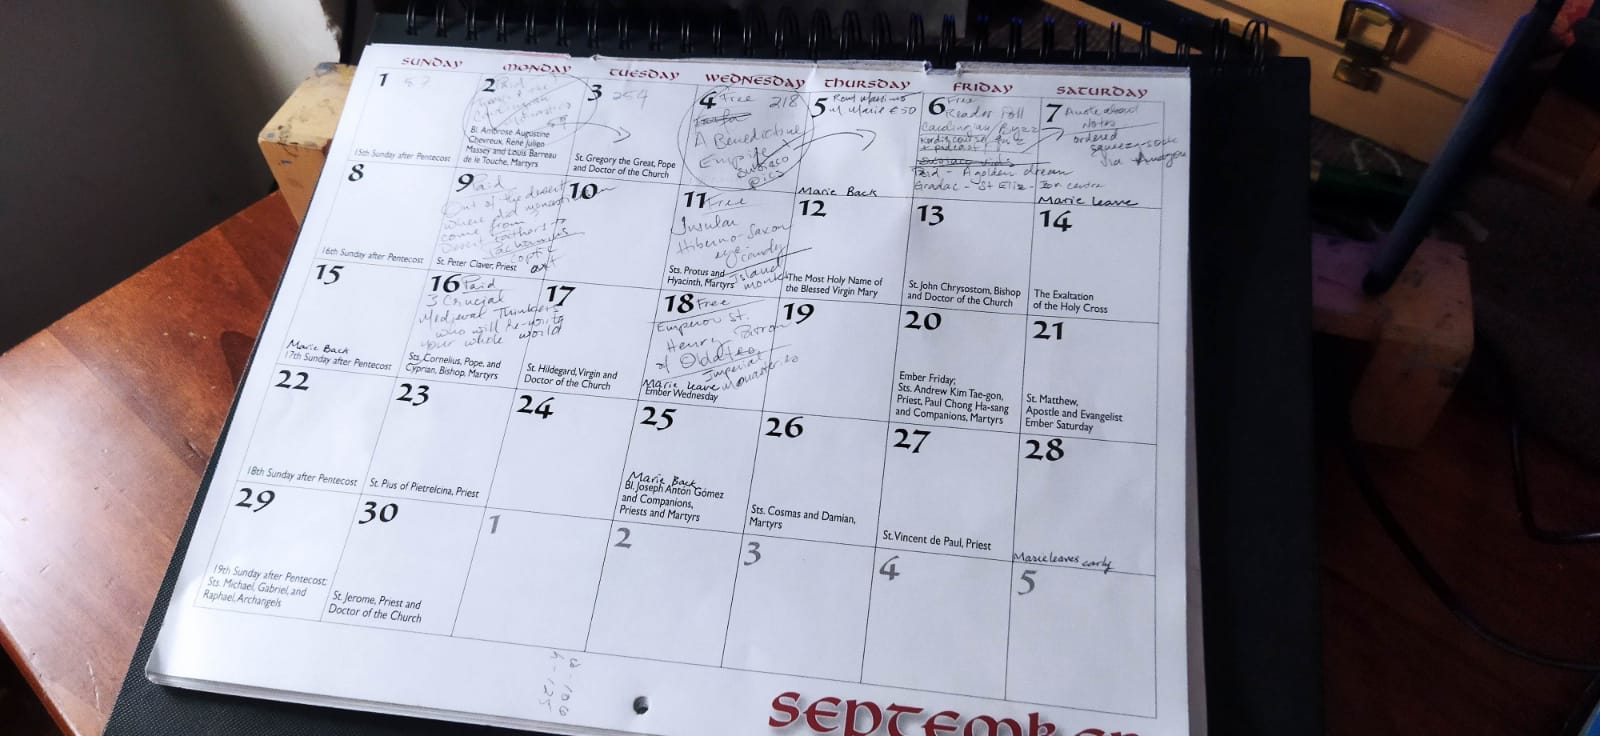 SUNDAY MONDAY TUESDAY WEDNESDAY THURSDAY FRIDAY SATURDAY
1 57
15th Sunday after Pentecost
2 Paid
Bl. Ambrose Augustine
Chevreux, Rene Julien
Massey and Louis Barreau
de le Touche, Martyrs
3 254
St. Gregory the Great, Pope
and Doctor of the Church
4 Free 218
A Benedictine
Empire
Subiaco
pics
5
w/ Marie €50
Marie Back
6 Free
Reader Poll
& podcast
Paid - A golden dream
Gradac - St Eliz -
7
Notes
ordered
squeeze-
via
Marie leave
8
16th Sunday after Pentecost
9 Paid
Out of the desert
where did monastic
come from
Desert Fathers to
Pachomius
coptic
art
St. Peter Claver, Priest
10
11 Free
Insular
Hiberno-Saxon
Island
monk
Sts. Protus and
Hyacinth, Martyrs
12
The Most Holy Name of
the Blessed Virgin Mary
13
St. John Chrysostom, Bishop
and Doctor of the Church
14
The Exaltation
of the Holy Cross
15
Marie Back
17th Sunday after Pentecost
16 Paid
3 Crucial
Medieval Thinkers
who will re-write
your whole world
Sts. Cornelius, Pope, and
Cyprian, Bishop, Martyrs
17
St. Hildegard, Virgin and
Doctor of the Church
18 Free
Emperor St.
Henry, Patron
of Oblates
Imperial
Monasteries
Marie leave
Ember Wednesday
19
20
Ember Friday;
Sts. Andrew Kim Tae-gon,
Priest, Paul Chong Ha-sang
and Companions, Martyrs
21
St. Matthew,
Apostle and Evangelist
Ember Saturday
22
18th Sunday after Pentecost
23
St. Pius of Pietrelcina, Priest
24
25
Marie Back
Bl. Joseph Anton Gomez
and Companions,
Priests and Martyrs
26
Sts. Cosmas and Damian,
Martyrs
27
St. Vincent de Paul, Priest
28
Marie leaves early
29
19th Sunday after Pentecost;
Sts. Michael, Gabriel, and
Raphael, Archangels
30
St. Jerome, Priest and
Doctor of the Church
1
2
3
4
5
SEPTEMBER